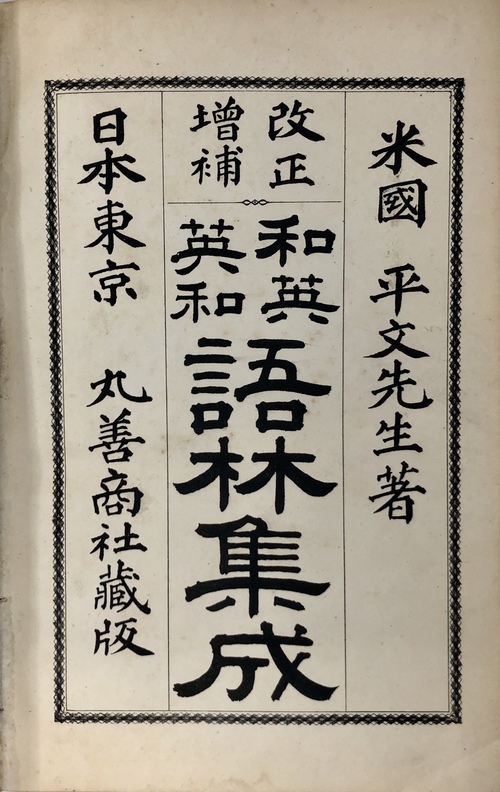 米國　平文先生著
改正
增補
和英
英和
語林集成
日本東京　丸善商社藏版